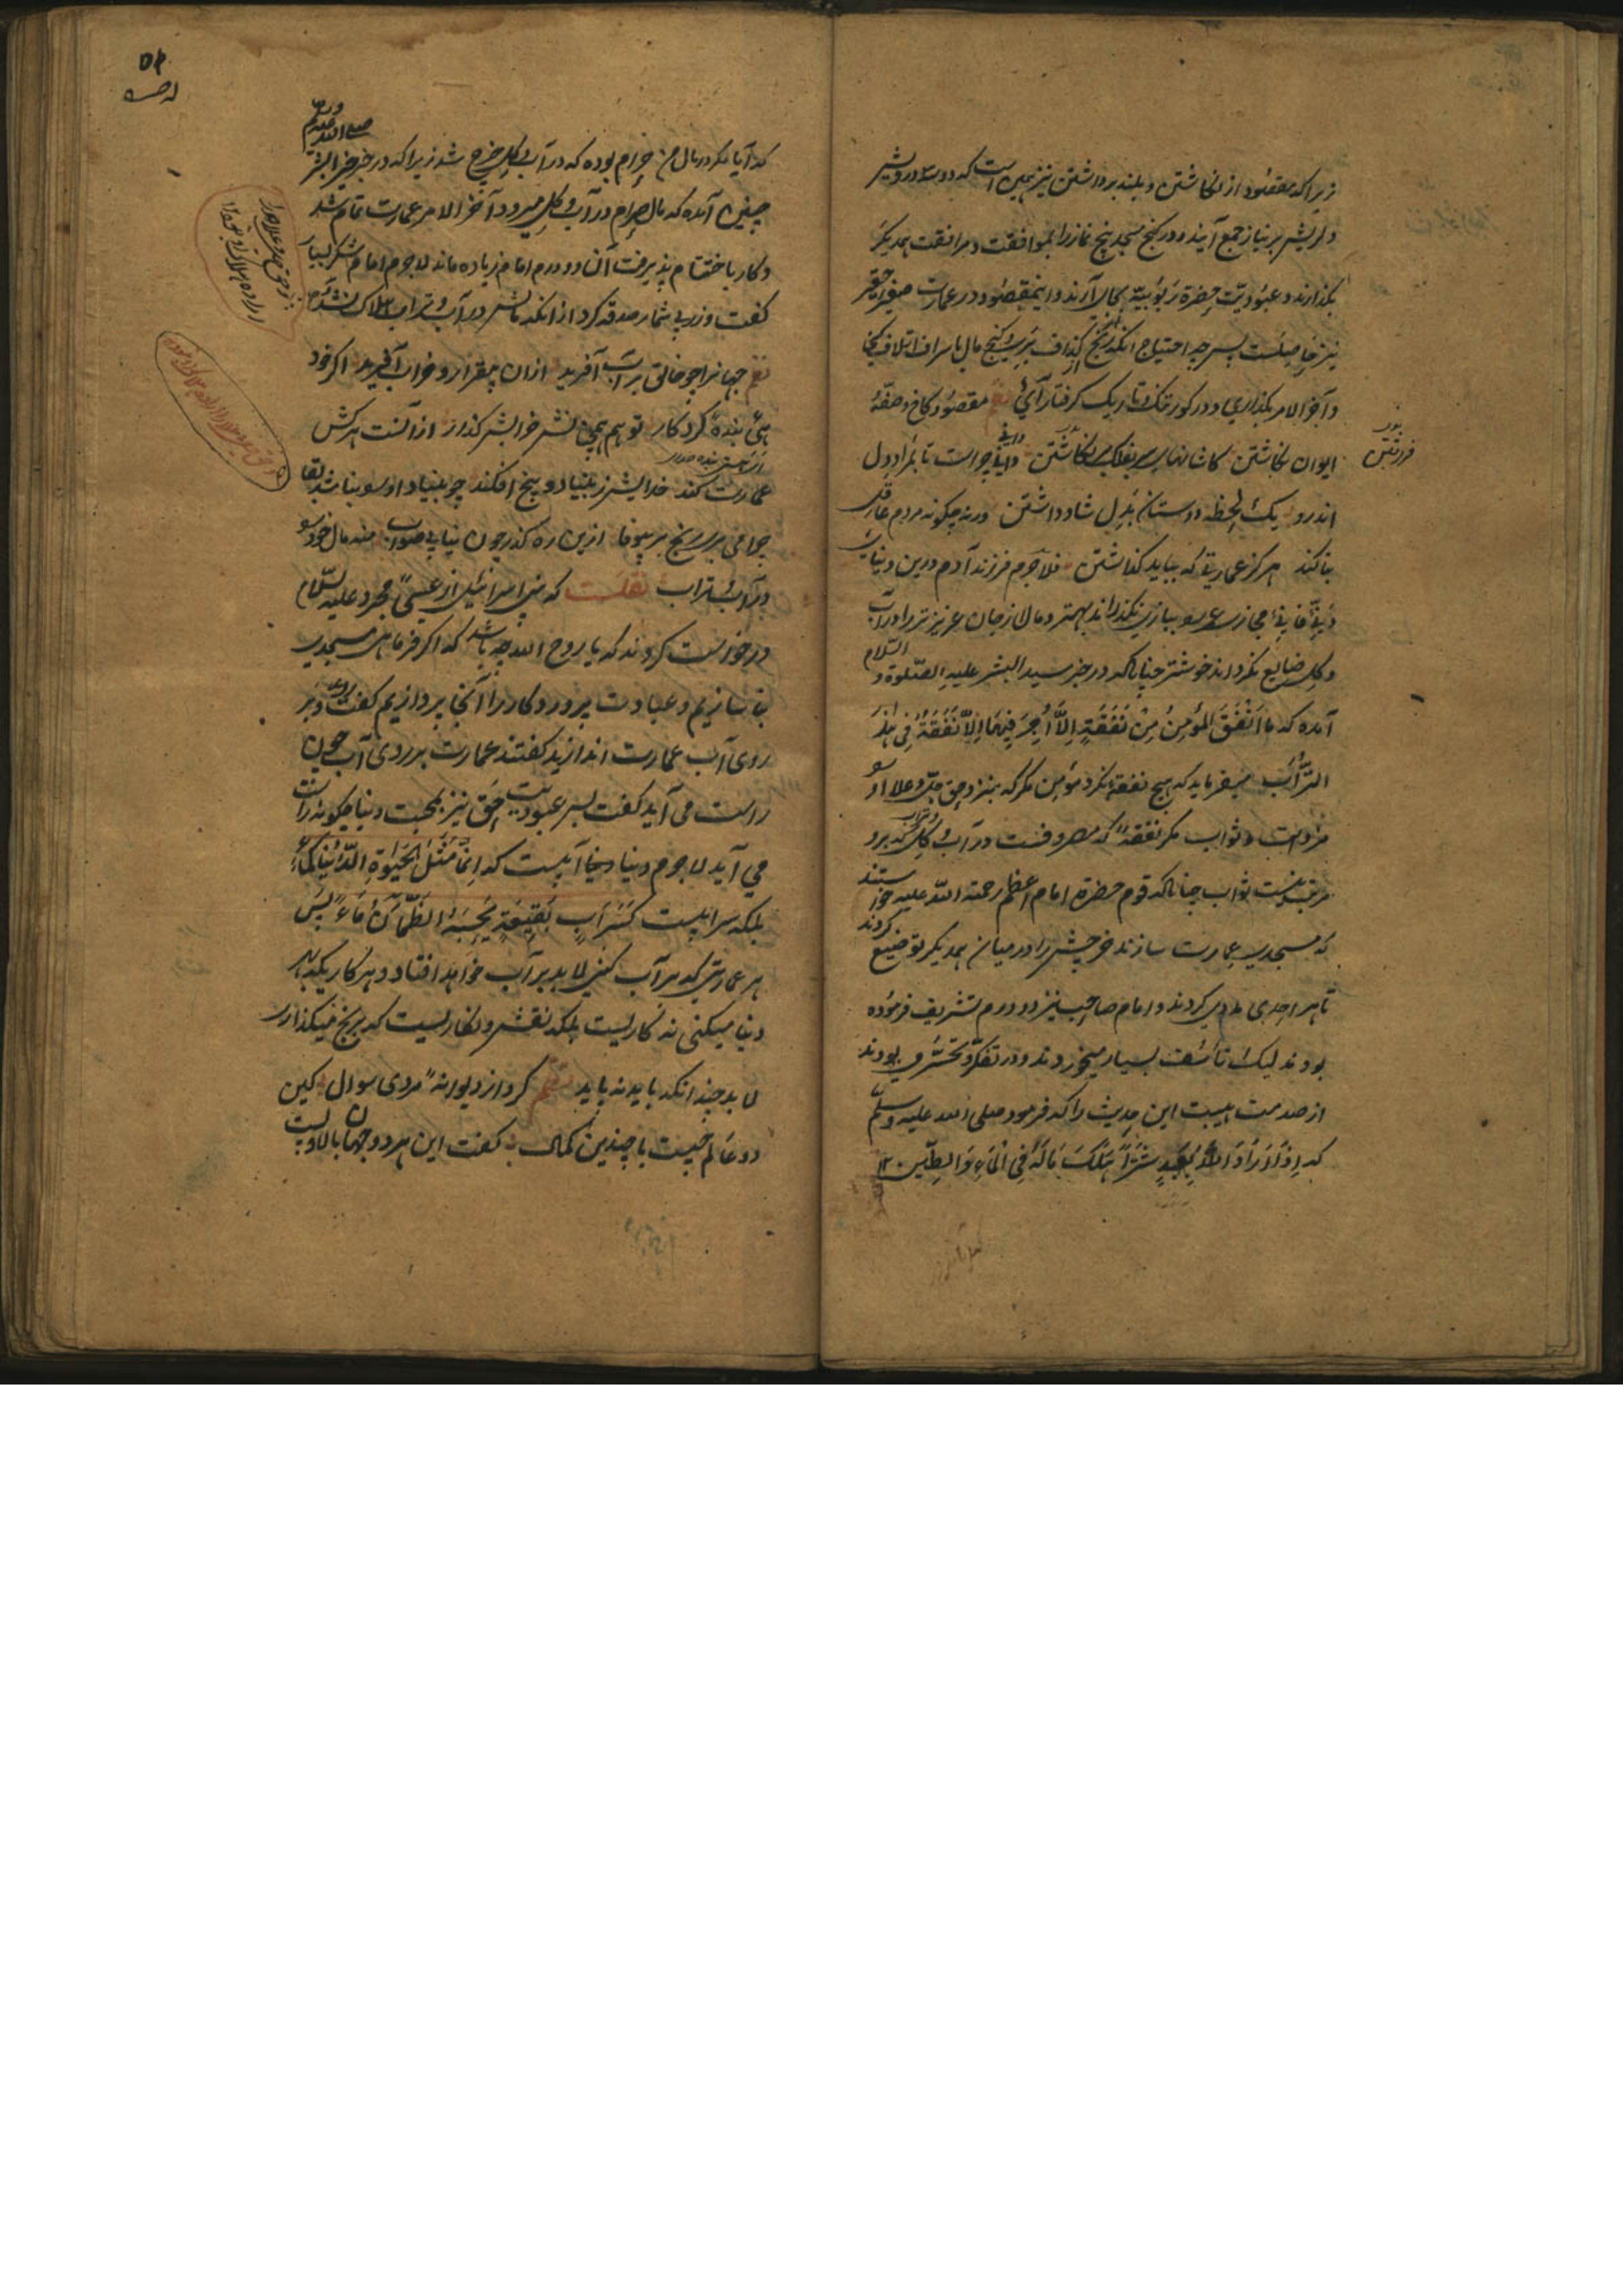 زیرا که مقصود از نکاشتن و بلند برداشتن نیز همین است که دوسه درویش
دلریش بر نیاز جمع آیند و در کنج مسجد پنج نماز را بموافقت و مرافقت همدیکر
بکذارند و عبودیت حضرة ربوبیة بجای آرند و این مقصود در عمارت صغیر حقیر
نیز حاصلست پس چه احتیاج انکه رنج از کذاف بری و کنج مال باسراف اتلاف کنی
و آخر الامر بکذاری و در کور تنک و تاریک کرفتار آئی مقصود کاخ و صفهٔ
ایوان نکاشتن کاشانهای سر بفلک بر فراشتن دانی چراست تا بمراد دل
اندرو یک لحظه دوستان بدل شاد داشتن ورنه چکونه مردم عاقل
بنا کند هرکز عمارتی که بباید کذاشتن فلاجرم فرزند آدم درین دنیای
دنی فانی مجازی عمر بازی نکذراند بهتر و مال از جان عزیزتر را در آب
و کل ضایع نکرداند خوشتر چنانکه در خبر سید البشر علیه الصلوة و السلام
آمده که ما انفق المؤمن من نفقة الا اجر فیها الا نفقة فی هذا
التراب میفرماید که هیچ نفقه نکرد مؤمن مکر که بنزد حق جل و علا او را
مزدست و ثواب مکر نفقهٔ که مصروفست در آب و کل که برو
مرتب نیست ثواب چنانکه قوم حضرة امام اعظم رحمة الله علیه خواستند
که مسجدی عمارت سازند خرچش را در میان همدیکر توضیع کردند
تا هر احدی مددی کردند و امام صاحب نیز دو درم تشریف فرموده
بودند لیک تأسف بسیار میخوردند و در تفکر و تحسر می بودند
از صدمت هیبت این حدیث را که فرمود صلی الله علیه وسلم
که اذا اراد الله بعبد شرا هلک ماله فی الماء و الطین
که آیا مکر در مال من حرام بوده که در آب و کل خرج شد زیرا که در خبر خیر البشر صلی الله علیه وسلم
چنین آمده که مال حرام در آب و کل میرود آخر الامر عمارت تمام شد
و کار باختتام پذیرفت آن دو درم امام زیاده ماند لاجرم امام شکر بسیار
کفت و زر بی شمار صدقه کرد از انکه مالش در آب و تراب هلاک نشد
جهانرا چو خالق بر آب آفرید ازان بیقرار و خراب آفرید اکر خود
بنده کرد کار تو هم همچو نقش خرابش کذار از آنست هرکس
عمارت کند خدایش ز بنیاد و بیخ افکند چو بنیاد او سو بنا شد بقا
چرا می بری رنج بر بیوفا ازین ره کذر چون نیابی صواب منه مال خود سو
در آب و تراب نقلست که بنی اسرائیل از عیسی مجرد علیه السلام
درخواست کردند که یا روح الله چه باشد که اکر فرمایی مسجدی
بنا سازیم و عبادت پروردکار را آنجا پردازیم کفت روید و بر
روی آب عمارت اندازید کفتند عمارت بر روی آب چون
راست می آید کفت پس عبودیت حق نیز بمحبت دنیا چکونه راست
می آید لاجرم دنیا دنیا آبیست که انما مثل الحیوة الدنیا کماء
بلکه سرابیست کسراب بقیعة یحسبه الظمآن ماء پس
هر عمارتی که بر آب کنی لابد بر آب خواهد افتاد و هر کاریکه در
دنیا میکنی نه کاریست بلکه نقش و نکاریست که بر یخ میکذاری
لابد چندانکه باید نه پاید نظم کرد از دیوانهٔ مردی سوال کین
دو عالم چیست با چندین کمال کفت این هر دو جهان بالا و پست